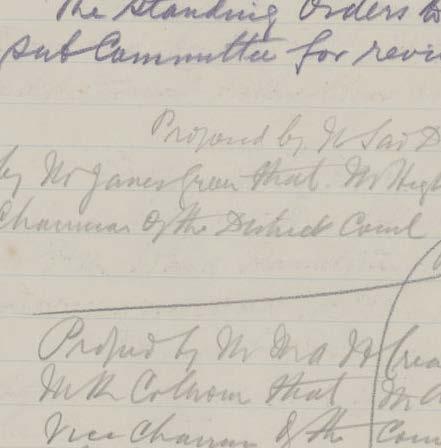 The Standing Orders to
Sub Committee for revi
Proposed by Mr
by Mr James Green that Mr Hugh
Chairman of the District Council
Proposed by Mr
that Mr
Vice Chairman of the Coun